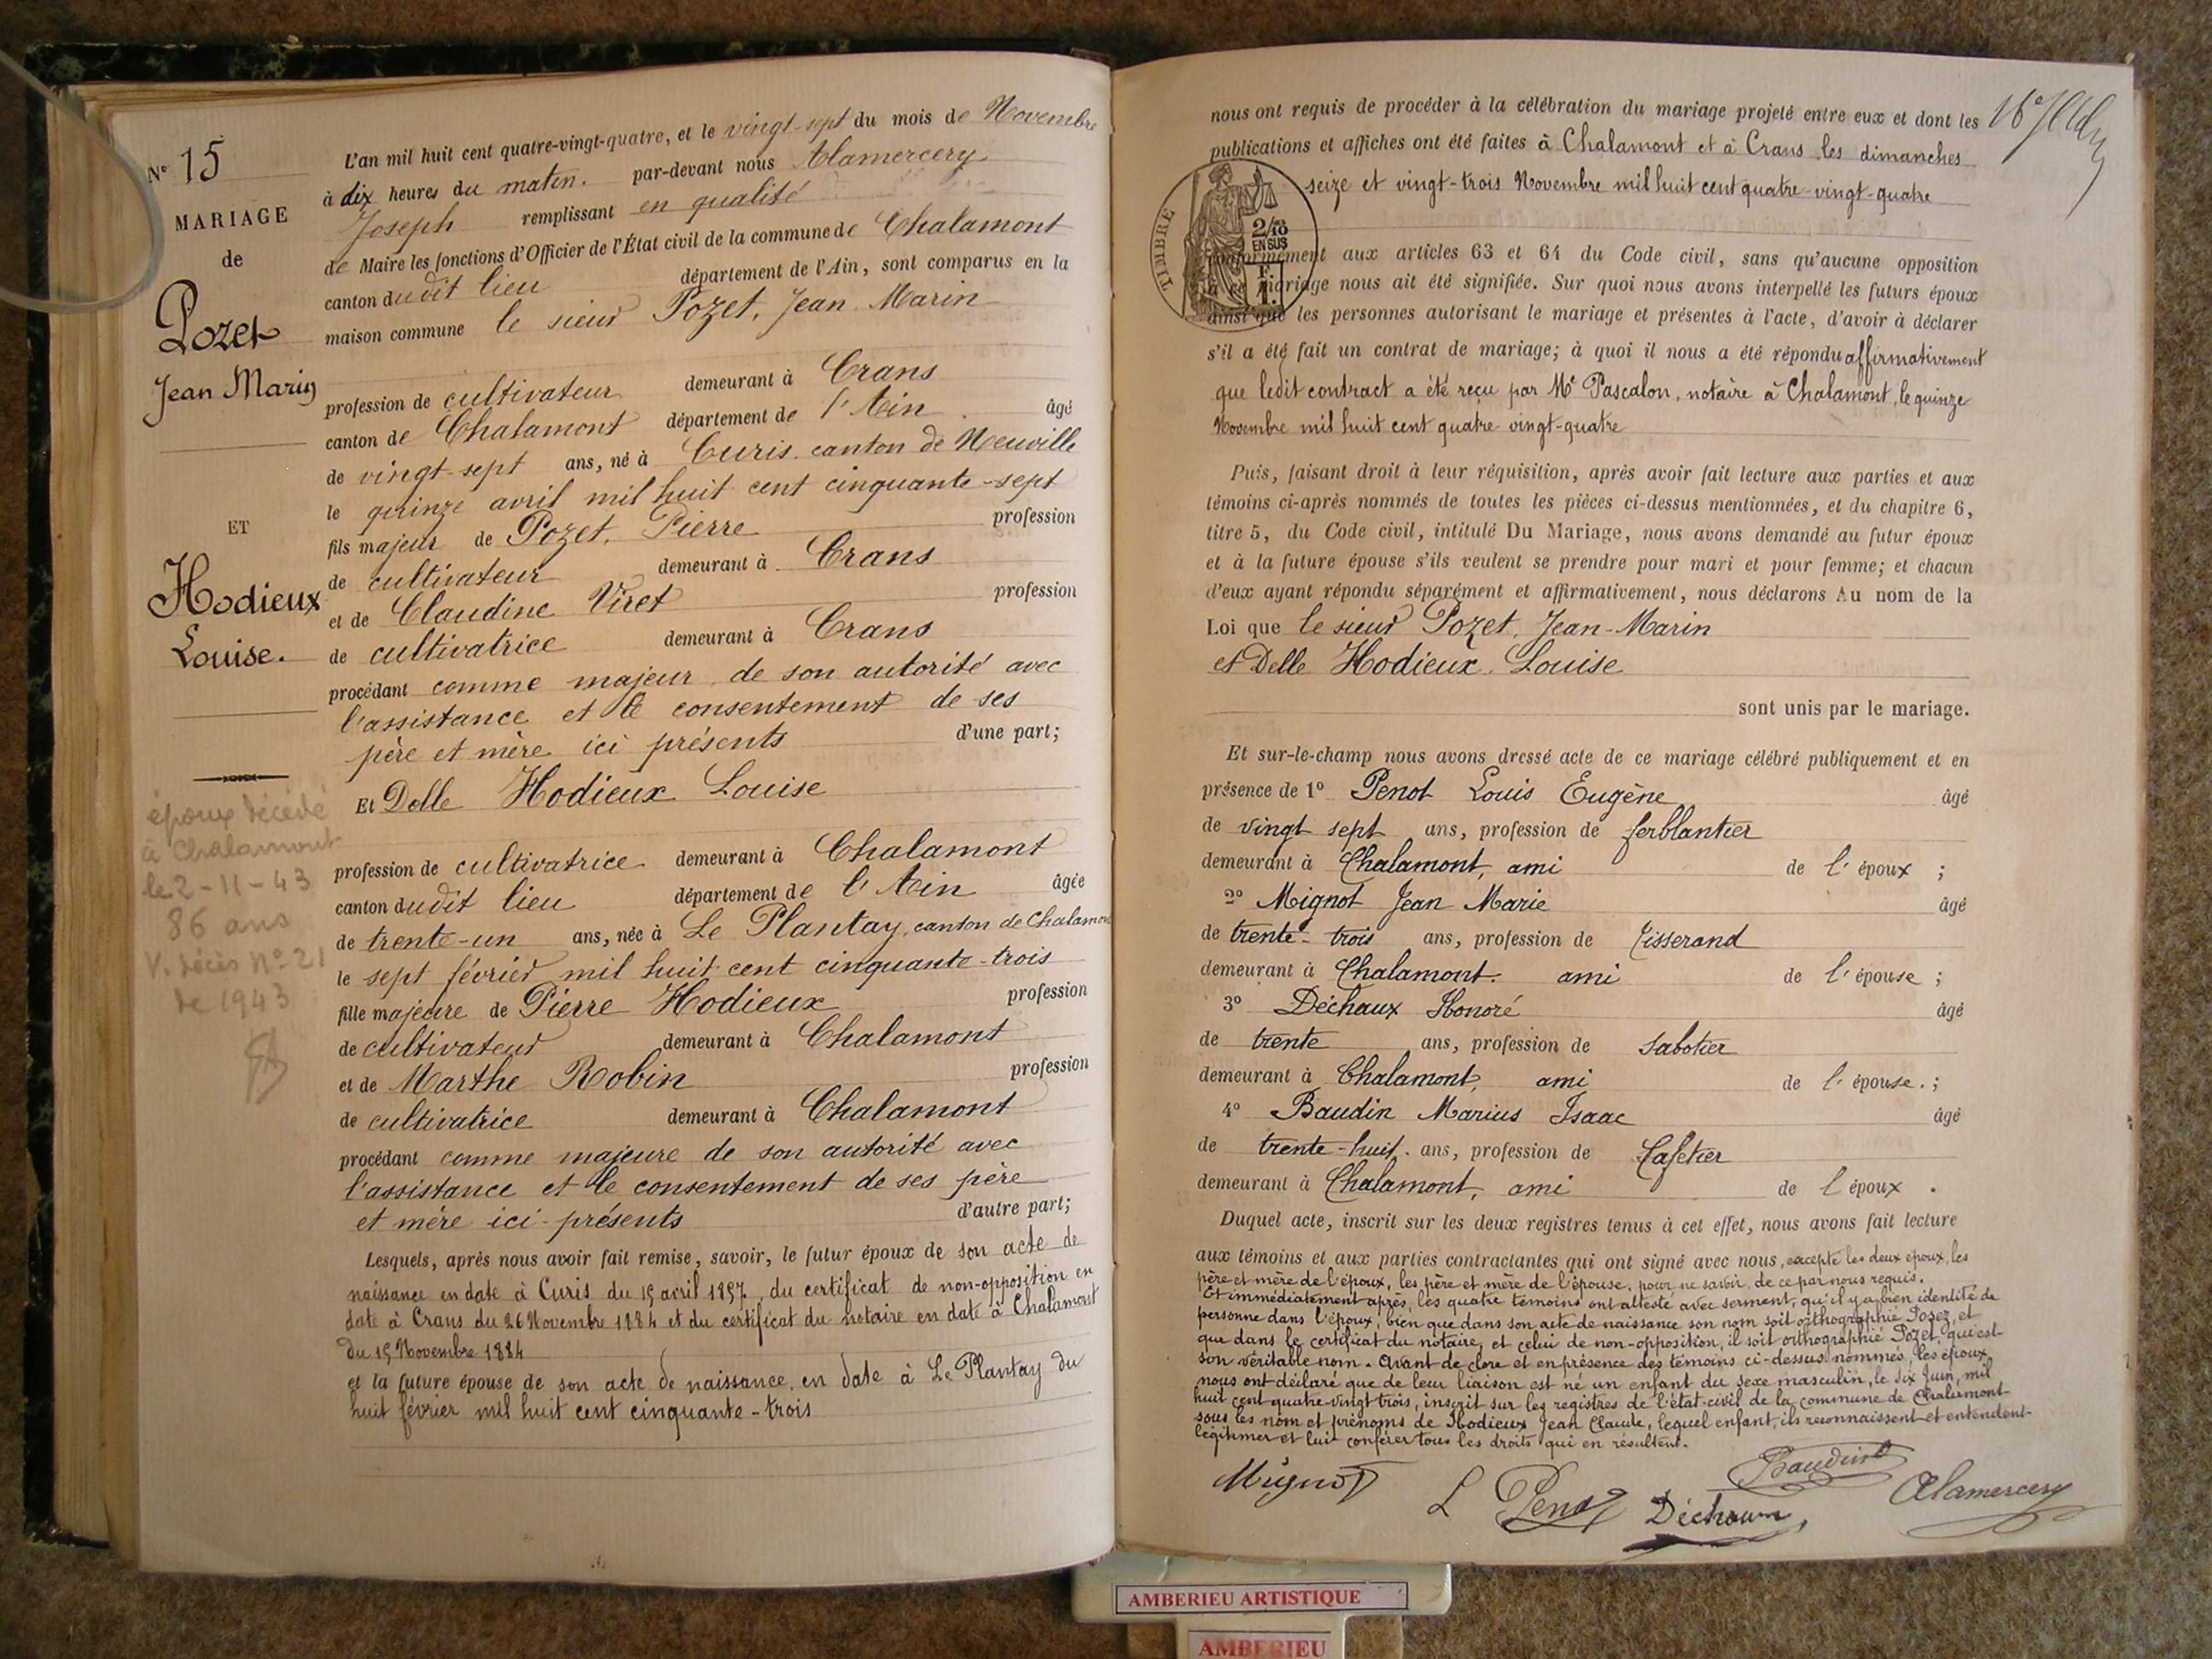 N° 15
MARIAGE
de
Pozet
Jean Marin
ET
Hodieux
Louise.
époux décédé
à Chalamont
le 2-11-43
86 ans
V. décès N° 21
de 1943
L'an mil huit cent quatre-vingt-quatre, et le vingt-sept du mois de Novembre
à dix heures du matin. par-devant nous Alamercery
Joseph remplissant en qualité
de Maire les fonctions d'Officier de l'État civil de la commune de Chalamont
canton dudit lieu département de l'Ain, sont comparus en la
maison commune le sieur Pozet, Jean Marin
profession de cultivateur demeurant à Crans
canton de Chalamont département de l'Ain âgé
de vingt-sept ans, né à Curis. canton de Neuville
le quinze avril mil huit cent cinquante-sept
fils majeur de Pozet, Pierre profession
de cultivateur demeurant à Crans
et de Claudine Viret profession
de cultivatrice demeurant à Crans
procédant comme majeur de son autorité avec
l'assistance et le consentement de ses
père et mère ici présents d'une part;
Et Delle Hodieux Louise
profession de cultivatrice demeurant à Chalamont
canton dudit lieu département de l'Ain âgée
de trente-un ans, née à Le Plantay, canton de Chalamont
le sept février mil huit cent cinquante-trois
fille majeure de Pierre Hodieux profession
de cultivateur demeurant à Chalamont
et de Marthe Robin profession
de cultivatrice demeurant à Chalamont
procédant comme majeure de son autorité avec
l'assistance et le consentement de ses père
et mère ici-présents d'autre part;
Lesquels, après nous avoir fait remise, savoir, le futur époux de son acte de
naissance en date à Curis du 15 avril 1857, du certificat de non-opposition en
date à Crans du 26 Novembre 1884 et du certificat du notaire en date à Chalamont
du 15 Novembre 1884
et la future épouse de son acte de naissance, en date à Le Plantay du
huit février mil huit cent cinquante-trois
nous ont requis de procéder à la célébration du mariage projeté entre eux et dont les
publications et affiches ont été faites à Chalamont et à Crans les dimanches
seize et vingt-trois Novembre mil huit cent quatre-vingt-quatre
TIMBRE
2/10
EN SUS
F.
1.
conformément aux articles 63 et 64 du Code civil, sans qu'aucune opposition
à ce mariage nous ait été signifiée. Sur quoi nous avons interpellé les futurs époux
ainsi que les personnes autorisant le mariage et présentes à l'acte, d'avoir à déclarer
s'il a été fait un contrat de mariage; à quoi il nous a été répondu affirmativement
que ledit contract a été reçu par Me Pascalon, notaire à Chalamont, le quinze
Novembre mil huit cent quatre-vingt-quatre
Puis, faisant droit à leur réquisition, après avoir fait lecture aux parties et aux
témoins ci-après nommés de toutes les pièces ci-dessus mentionnées, et du chapitre 6,
titre 5, du Code civil, intitulé Du Mariage, nous avons demandé au futur époux
et à la future épouse s'ils veulent se prendre pour mari et pour femme; et chacun
d'eux ayant répondu séparément et affirmativement, nous déclarons Au nom de la
Loi que le sieur Pozet, Jean-Marin
et Delle Hodieux Louise
sont unis par le mariage.
Et sur-le-champ nous avons dressé acte de ce mariage célébré publiquement et en
présence de 1° Penot Louis Eugène âgé
de vingt sept ans, profession de ferblantier
demeurant à Chalamont, ami de l'époux ;
2° Mignot Jean Marie âgé
de trente-trois ans, profession de Tisserand
demeurant à Chalamont. ami de l'épouse ;
3° Déchaux Honoré âgé
de trente ans, profession de Sabotier
demeurant à Chalamont, ami de l'épouse. ;
4° Baudin Marius Isaac âgé
de trente-huit. ans, profession de Cafetier
demeurant à Chalamont, ami de l'époux .
Duquel acte, inscrit sur les deux registres tenus à cet effet, nous avons fait lecture
aux témoins et aux parties contractantes qui ont signé avec nous, excepté les deux époux, les
père et mère de l'époux, les père et mère de l'épouse, pour ne savoir, de ce par nous requis.
Et immédiatement après, les quatre témoins ont attesté avec serment, qu'il y a bien identité de
personne dans l'époux, bien que dans son acte de naissance son nom soit orthographié Pozez, et
que dans le certificat du notaire, et celui de non-opposition, il soit orthographié Pozet, qui est
son véritable nom. Avant de clore et en présence des témoins ci-dessus nommés, les époux
nous ont déclaré que de leur liaison est né un enfant du sexe masculin, le dix Juin, mil
huit cent quatre-vingt trois, inscrit sur les registres de l'état-civil de la commune de Chalamont
sous les nom et prénoms de Hodieux Jean Claude, lequel enfant, ils reconnaissent et entendent
légitimer et lui conférer tous les droits qui en résultent.
Mignot
L Penot
Baudin
Déchaux
Alamercery
AMBERIEU ARTISTIQUE
AMBERIEU